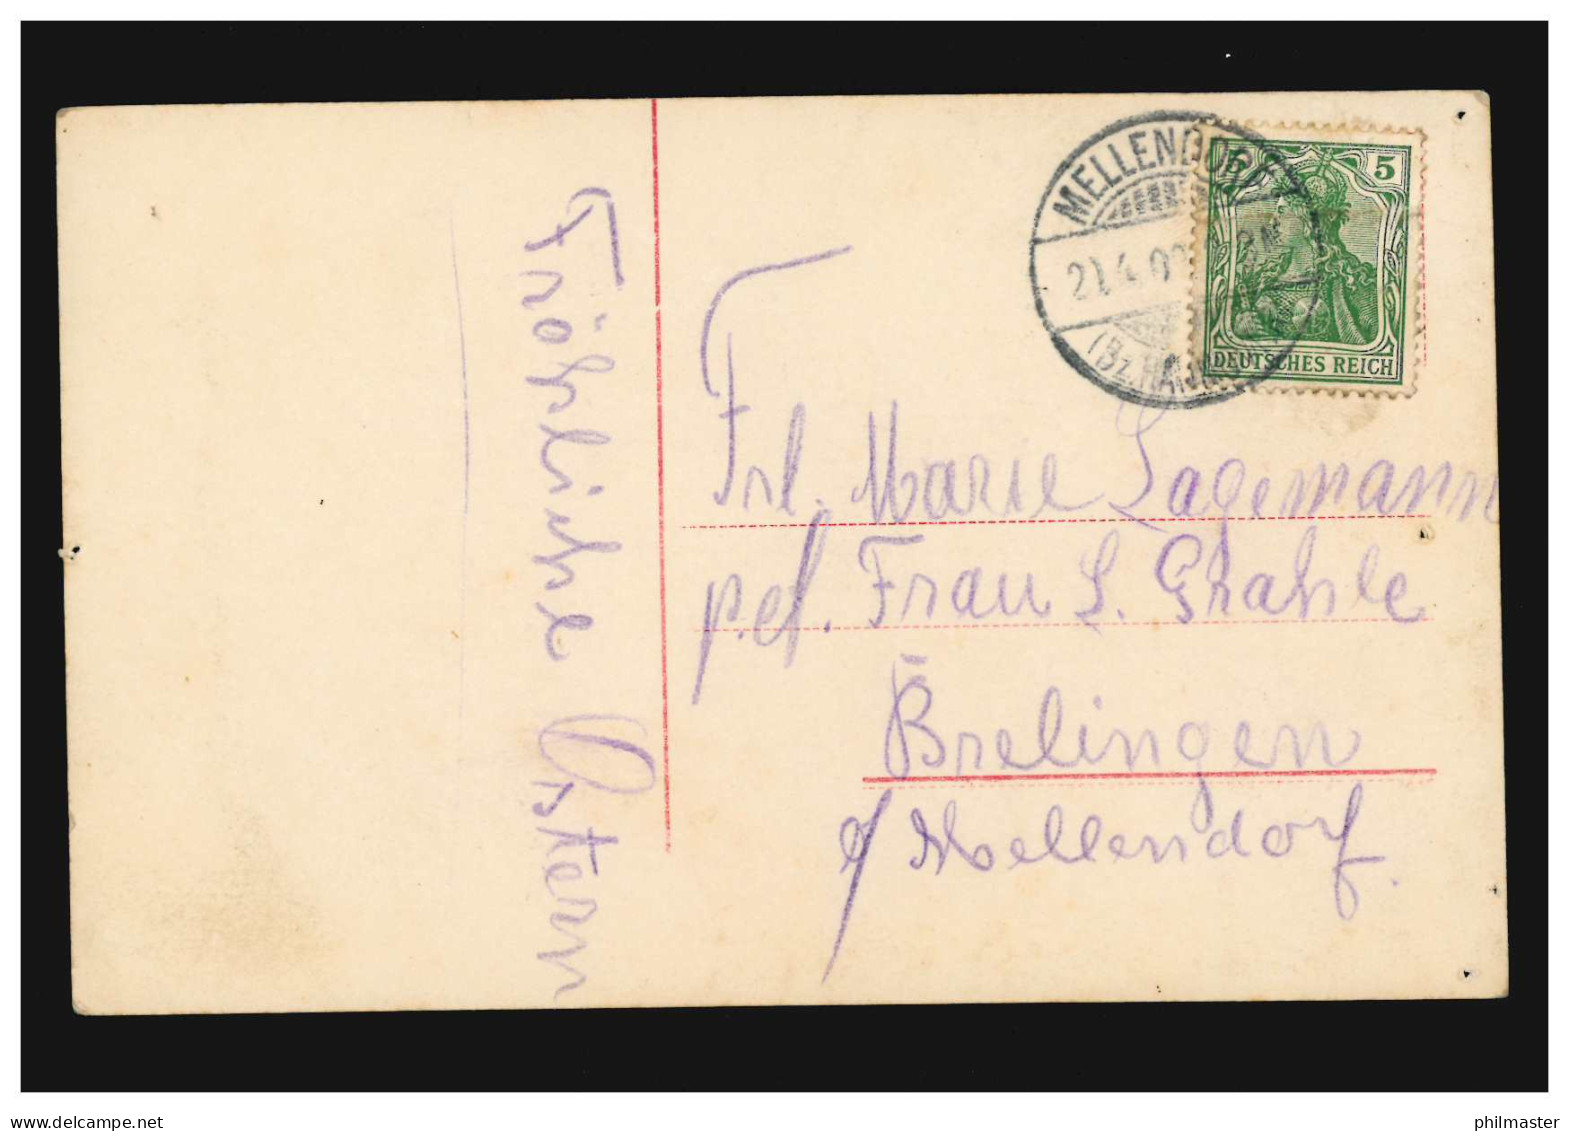 Fröhliche Ostern
MELLENDORF
21.4.0
(Bz. HA
5 5
DEUTSCHES REICH
Frl. Marie Lagemann
p. ad. Frau L. Grahle
Brelingen
b/ Mellendorf.
delcampe.net
philmaster